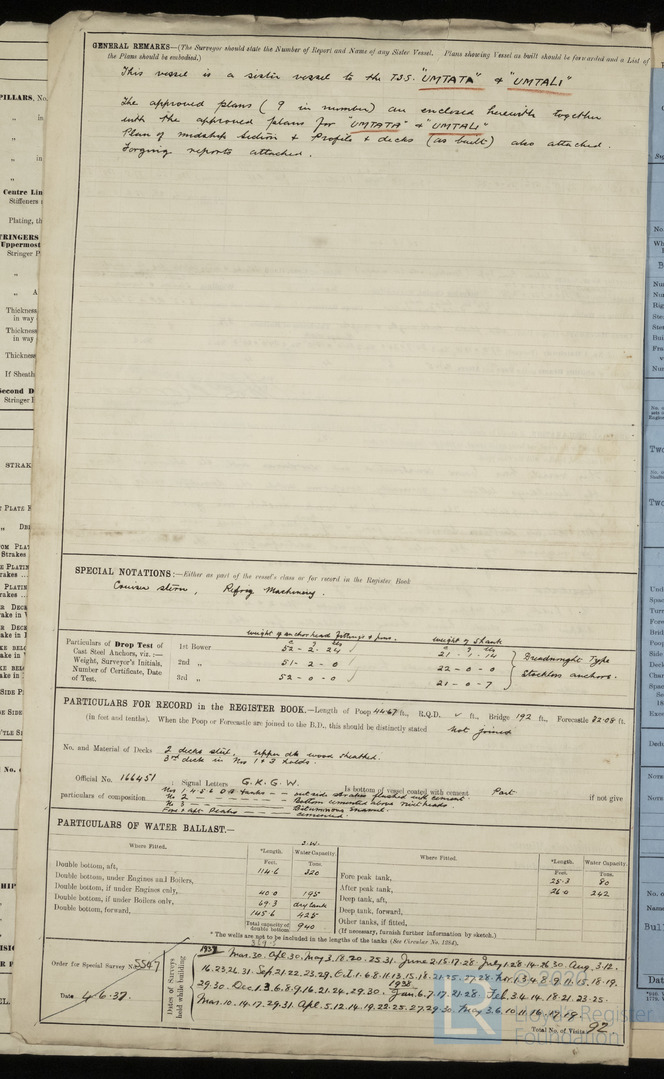 GENERAL REMARKS—(The Surveyor should state the Number of Report and Name of any Sister Vessel. Plans showing Vessel as built should be forwarded and a List of
the Plans should be embodied.)
This vessel is a sister vessel to the T.S.S. "UMTATA" & "UMTALI"
The approved plans (9 in number) are enclosed herewith together
with the approved plans for "UMTATA" & "UMTALI"
Plan of midship section & profile & decks (as built) also attached.
Forging reports attached.
SPECIAL NOTATIONS:—Either as part of the vessel's class or for record in the Register Book
Cruiser stern, Refrig Machinery.
weight of anchor head fittings & pins. weight of Shank
Particulars of Drop Test of
Cast Steel Anchors, viz.:—
Weight, Surveyor's Initials,
Number of Certificate, Date
of Test.
1st Bower 52 - 2 - 24 21 - - 14
2nd „ 51 - 2 - 0 22 - 0 - 0
3rd „ 52 - 0 - 0 21 - 0 - 7
Dreadnought Type
Stockless anchors.
PARTICULARS FOR RECORD in the REGISTER BOOK.—Length of Poop 44.67 ft., R.Q.D. ft., Bridge 192 ft., Forecastle 32.08 ft.
(in feet and tenths). When the Poop or Forecastle are joined to the B.D., this should be distinctly stated not joined
No. and Material of Decks 2 decks steel, upper dk wood sheathed.
3rd deck in Nos 1 & 3 holds.
Official No. 166451 ; Signal Letters G.K.G.W. Is bottom of vessel coated with cement Part if not give
particulars of composition Nos 1 4 5 6 D B tanks — outside strakes flushed with cement.
No 2 — Bottom cemented above rivet heads
No 3 — Bituminous Enamel.
Fore & aft Peaks — cemented.
PARTICULARS OF WATER BALLAST.—
Where Fitted. *Length. Water Capacity. Where Fitted. *Length. Water Capacity.
Feet. Tons. Feet. Tons.
Double bottom, aft, 114.6 320
Double bottom, under Engines and Boilers,
Double bottom, if under Engines only, 40.0 195
Double bottom, if under Boilers only, 69.3 dry tank
Double bottom, forward, 145.6 425
Total capacity of double bottom 940
Fore peak tank, 25.3 80
After peak tank, 26.0 242
Deep tank, aft,
Deep tank, forward,
Other tanks, if fitted,
(If necessary, furnish further information by sketch.)
* The wells are not to be included in the lengths of the tanks (See Circular No. 1284).
Order for Special Survey No. 5547
Date 4.6.37.
Dates of Surveys held while building
1937 Mar.30. Apl.30. May.3.18.20.25.31. June 2.15.17.28. July 1.28.14.26.30. Aug.3.12.
16.23.26.31. Sep.21.22.23.29. Oct.1.6.8.11.13.15.18.21.25.27.28. Nov.1.3.4.8.9.11.15.18.19.
29.30. Dec.1.3.6.8.9.16.21.24.29.30. 1938 Jan.6.7.17.21.28. Feb.3.4.14.18.21.23.25.
Mar.10.14.17.29.31. Apl.5.12.14.19.22.25.27.29.30. May 3.6.10.11.16.17.19.
Total No. of Visits 92.
© 2020
LR
Lloyd's Register
Foundation